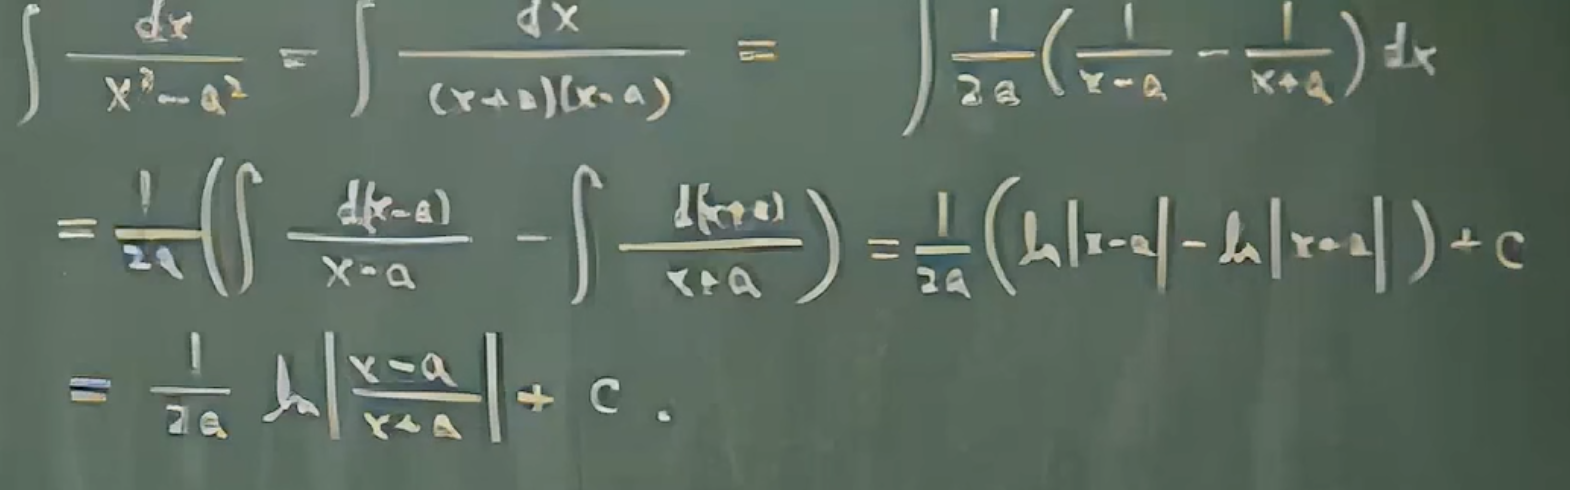 ∫ dx/(x²-a²) = ∫ dx/((x+a)(x-a)) = ∫ 1/(2a) (1/(x-a) - 1/(x+a)) dx
= 1/(2a) (∫ d(x-a)/(x-a) - ∫ d(x+a)/(x+a)) = 1/(2a) (ln|x-a| - ln|x+a|) + C
= 1/(2a) ln|(x-a)/(x+a)| + C .